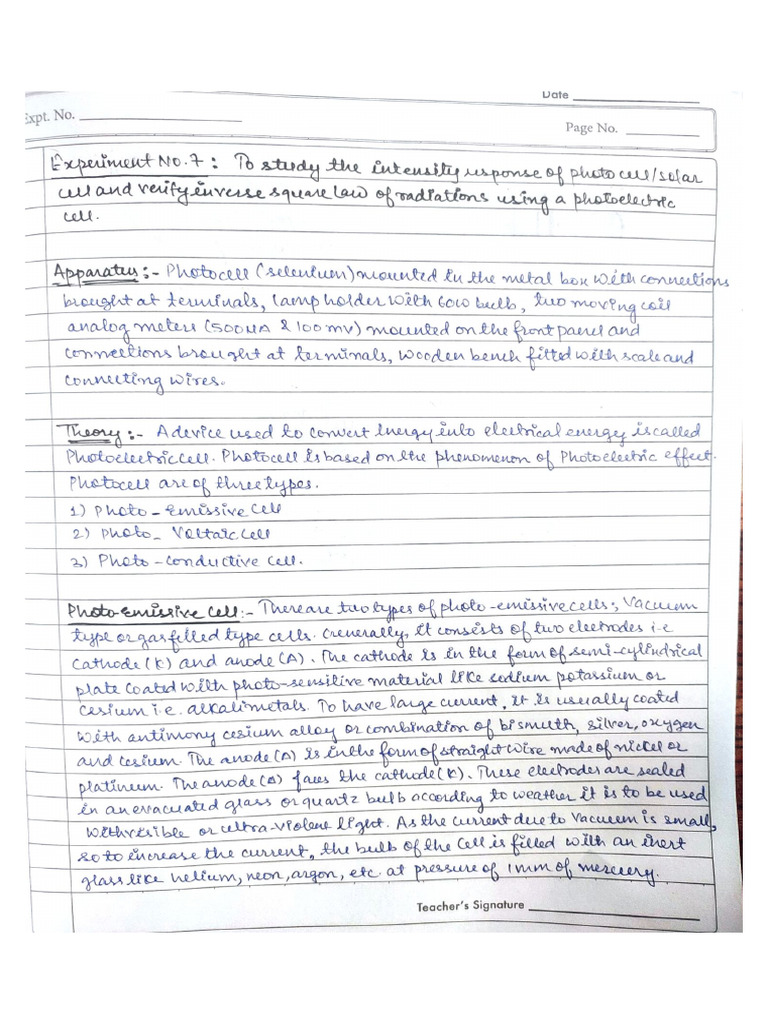 Date
Expt. No.
Page No.
Experiment No. 7 : To study the intensity response of photo cell/solar
cell and verify inverse square law of radiations using a photoelectric
cell.
Apparatus :- Photocell (selenium) mounted in the metal box with connections
brought at terminals, lamp holder with 60W bulb, two moving coil
analog meters (500μA & 100mV) mounted on the front panel and
connections brought at terminals, wooden bench fitted with scale and
connecting wires.
Theory :- A device used to convert energy into electrical energy is called
Photoelectric cell. Photocell is based on the phenomenon of Photoelectric effect.
Photocell are of three types.
1) Photo - Emissive Cell
2) Photo - Voltaic Cell
3) Photo - Conductive Cell.
Photo-Emissive Cell :- There are two types of photo-emissive cells:, Vacuum
type or gas filled type cells. Generally, it consists of two electrodes i.e
Cathode (K) and anode (A). The cathode is in the form of semi-cylindrical
plate coated with photo-sensitive material like sodium potassium or
cesium i.e. alkali metals. To have large current, it is usually coated
with antimony cesium alloy or combination of bismuth, silver, oxygen
and cesium. The anode (A) is in the form of straight wire made of nickel or
platinum. The anode (A) faces the cathode (K). These electrodes are sealed
in an evacuated glass or quartz bulb according to weather it is to be used
with visible or ultra-violent light. As the current due to vacuum is small,
so to increase the current, the bulb of the cell is filled with an inert
glass like helium, neon, argon, etc at pressure of 1mm of mercury.
Teacher's Signature